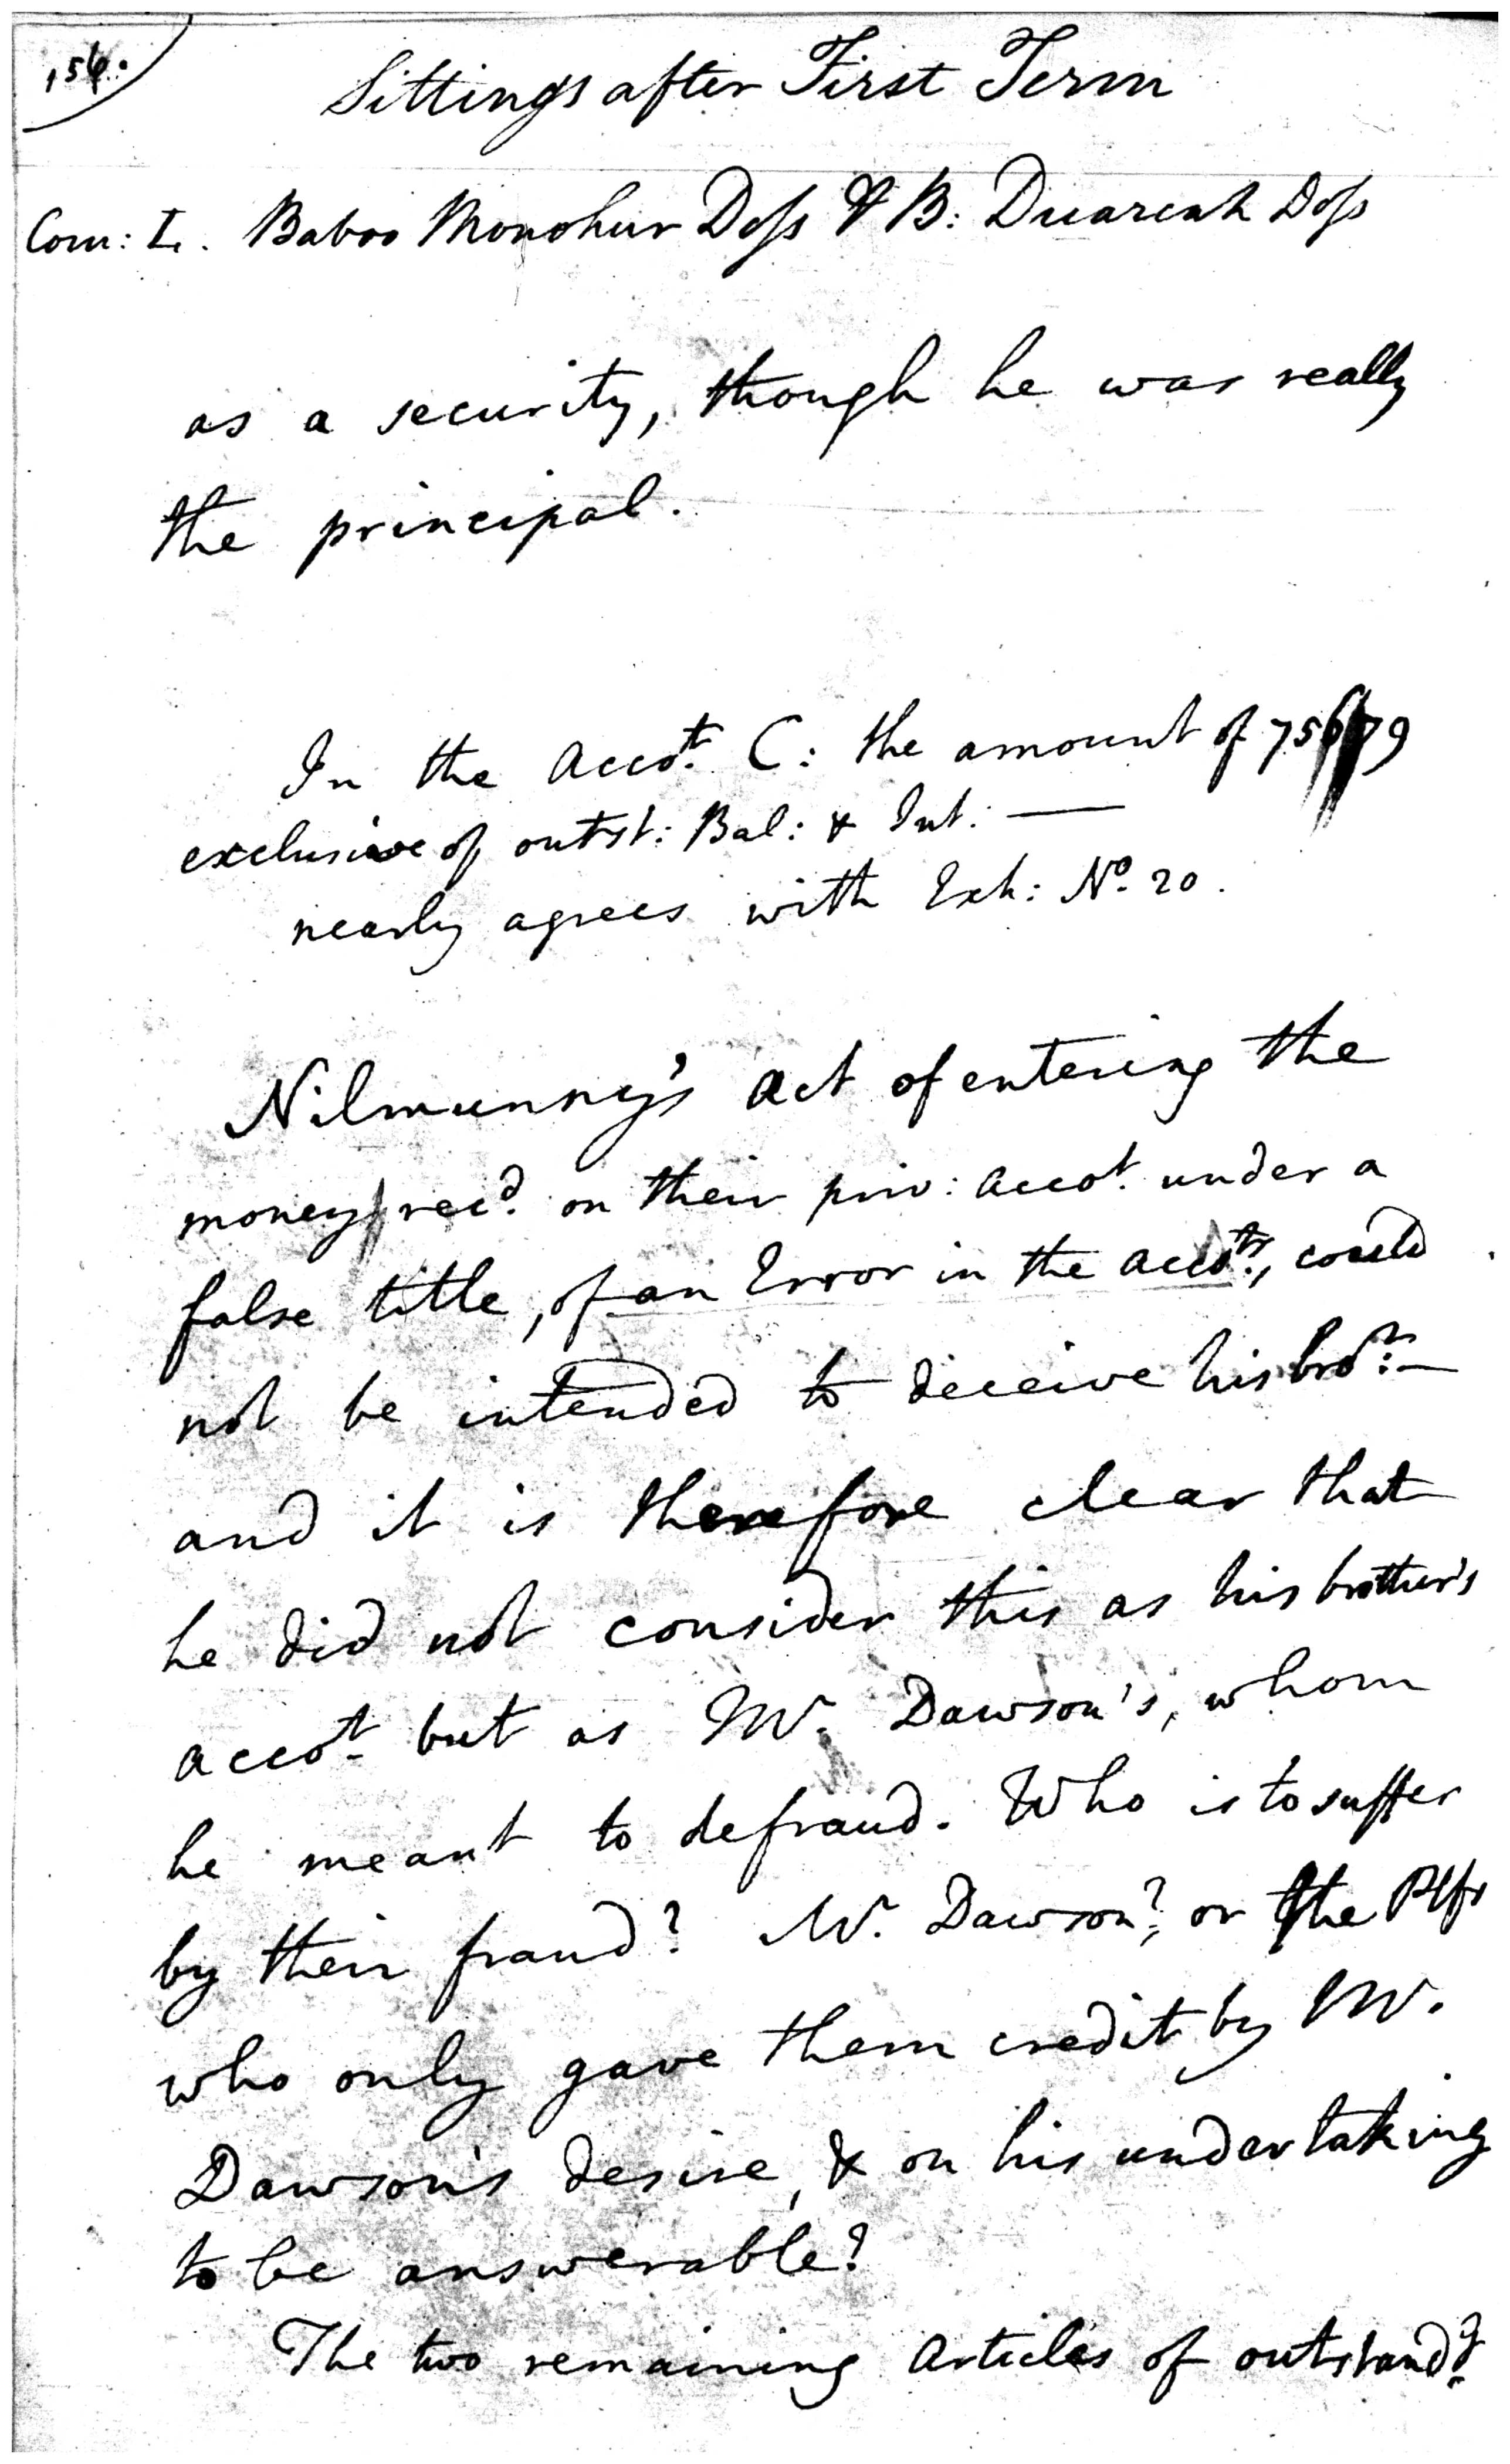 156.
Sittings after First Term
Com: L. Baboo Monohur Doss & B: Duarcah Doss
as a security, though he was really
the principal.
In the Accot. C: the amount of
exclusive of outst: Bal: & Int: —
nearly agrees with Exh: No. 20.
Nilmunny's act of entering the
money recd. on their priv: accot. under a
false title, of an Error in the accots., could
not be intended to deceive his bror: —
and it is therefore clear that
he did not consider this as his brother's
accot. but as Mr. Dawson's, whom
he meant to defraud. Who is to suffer
by their fraud? Mr. Dawson? or the Plfs
who only gave them credit by Mr.
Dawson's desire, & on his undertaking
to be answerable?
The two remaining articles of outstandg.